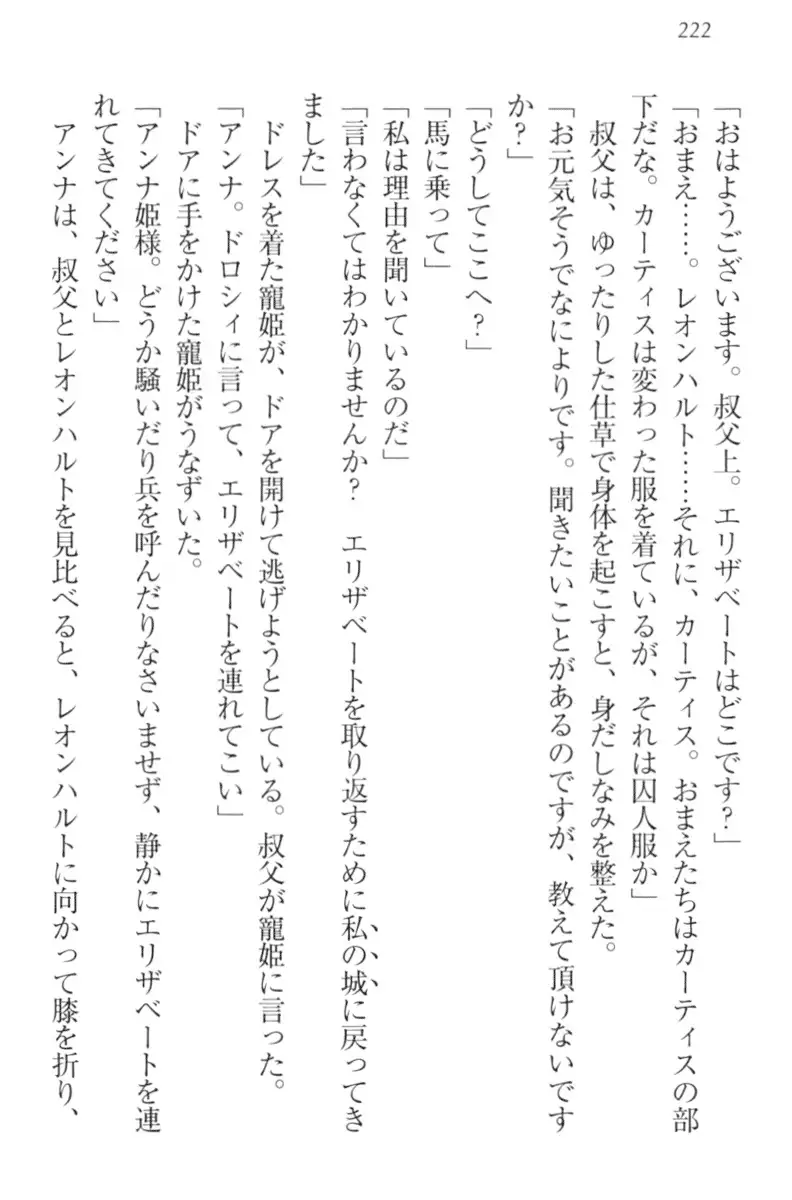 222
「おはようございます。叔父上。エリザベートはどこです?」
「おまえ……。レオンハルト……それに、カーティス。おまえたちはカーティスの部
下だな。カーティスは変わった服を着ているが、それは囚人服か」
叔父は、ゆったりした仕草で身体を起こすと、身だしなみを整えた。
「お元気そうでなによりです。聞きたいことがあるのですが、教えて頂けないです
か?」
「どうしてここへ?」
「馬に乗って」
「私は理由を聞いているのだ」
「言わなくてはわかりませんか? エリザベートを取り返すために私の城に戻ってき
ました」
ドレスを着た寵姫が、ドアを開けて逃げようとしている。叔父が寵姫に言った。
「アンナ。ドロシィに言って、エリザベートを連れてこい」
ドアに手をかけた寵姫がうなずいた。
「アンナ姫様。どうか騒いだり兵を呼んだりなさいませず、静かにエリザベートを連
れてきてください」
アンナは、叔父とレオンハルトを見比べると、レオンハルトに向かって膝を折り、